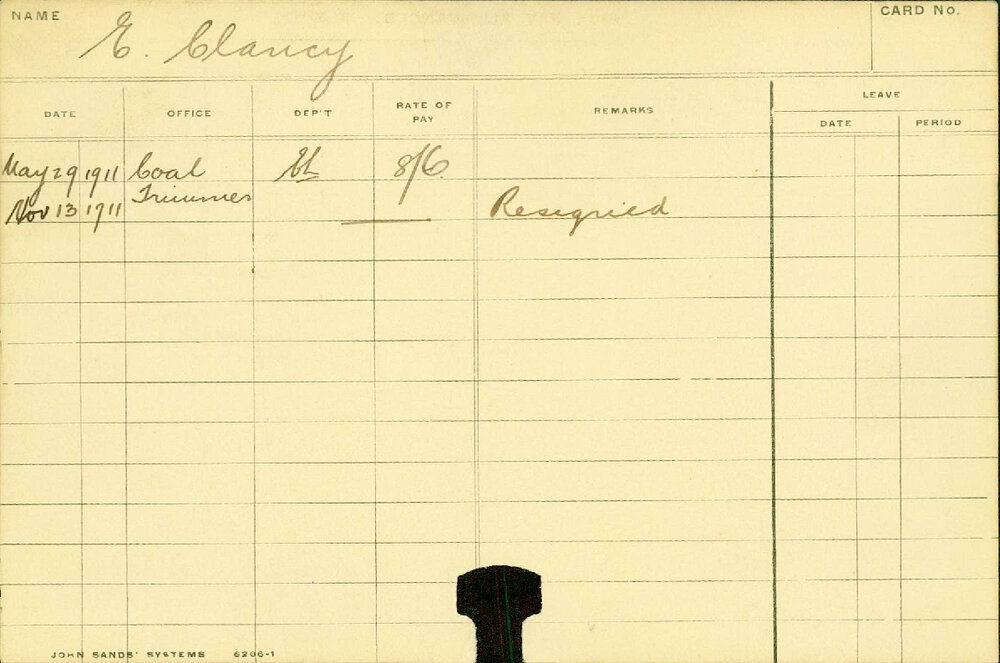 NAME
E. Clancy
CARD No.
DATE
OFFICE
DEP'T
RATE OF PAY
REMARKS
LEAVE
DATE
PERIOD
May 29 1911 Coal 8/6
Nov 13 1911 Trimmer Resigned
JOHN SANDS' SYSTEMS 6206-1